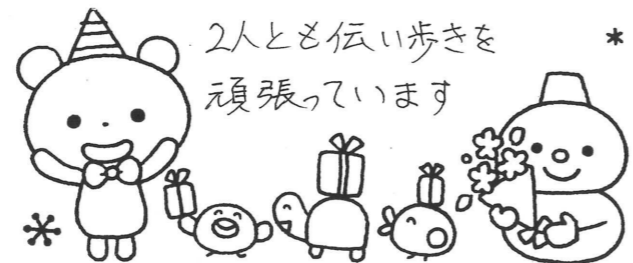 2人とも伝い歩きを
頑張っています